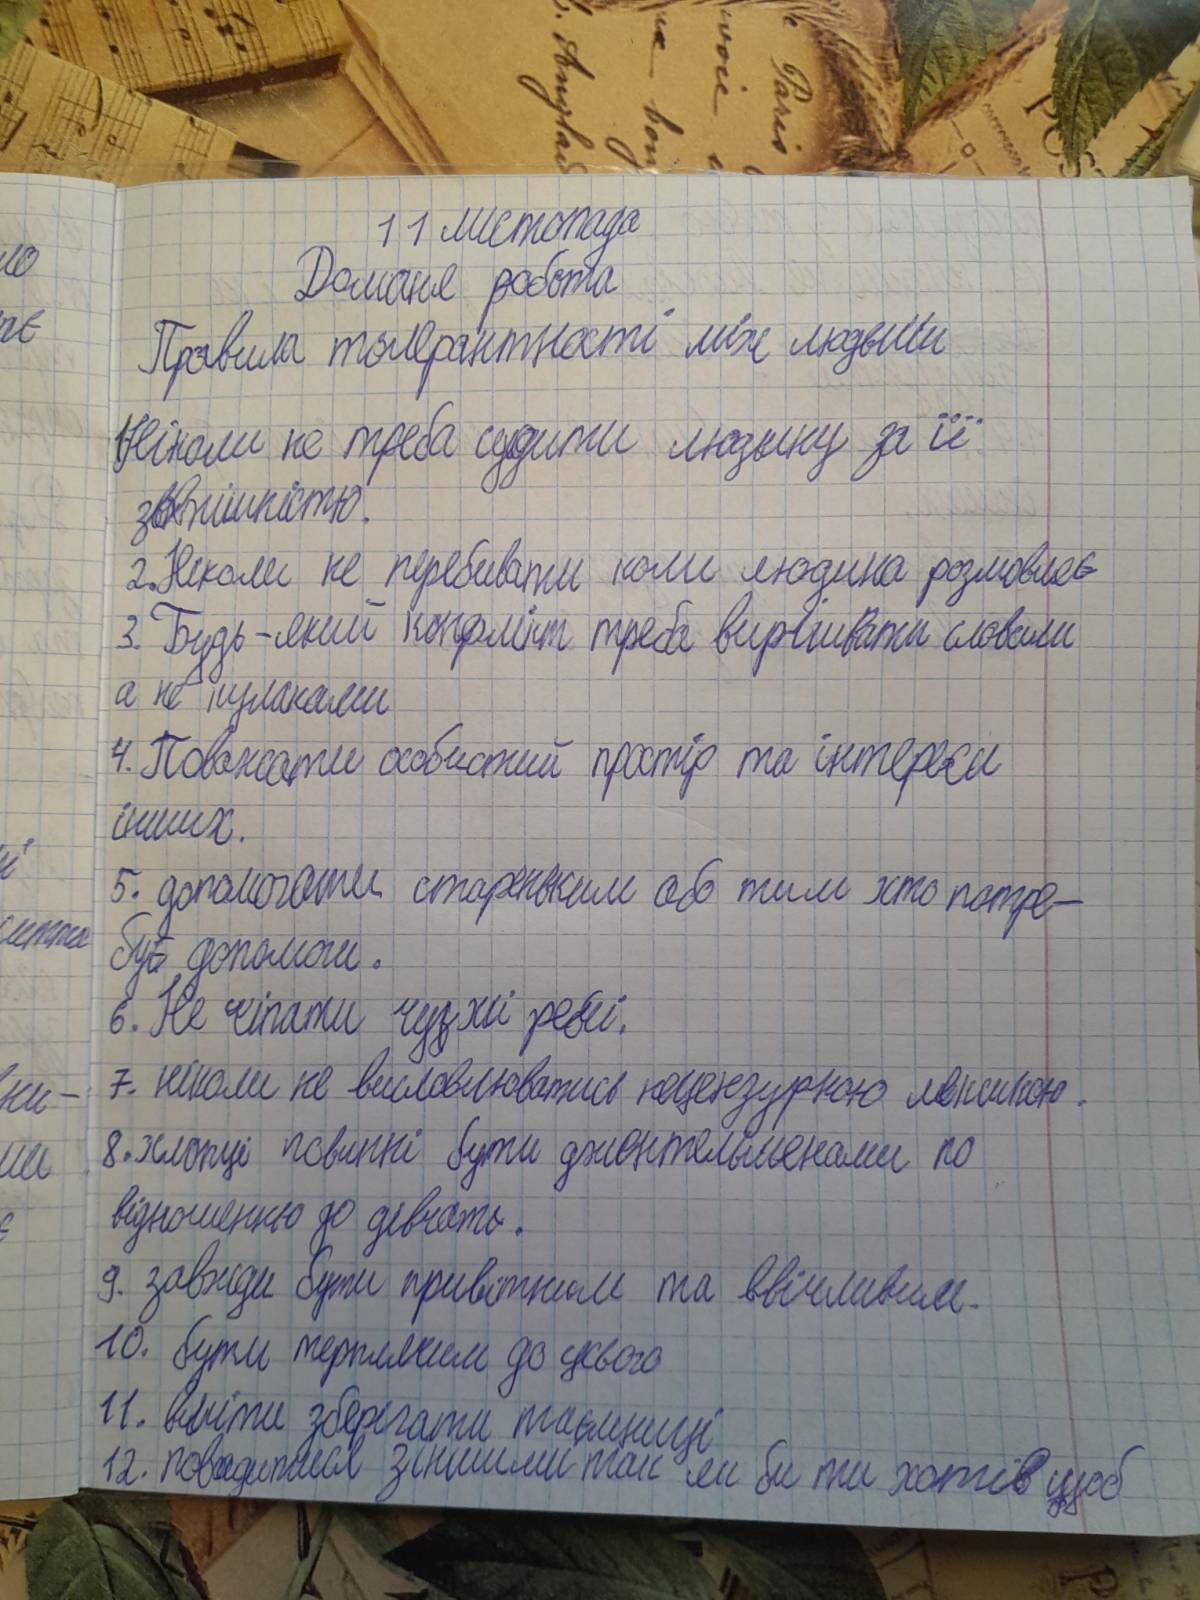 11 листопада
Домашня робота
Правила толерантності між людьми
1.Ніколи не треба судити людину за її
зовнішністю.
2. Ніколи не перебивати коли людина розмовляє
3. Будь-який конфлікт треба вирішивати словами
а не кулаками
4. Поважати особистий простір та інтереси
інших.
5. допомогати стареньким або тим хто потре-
бує допомоги.
6. Не чіпати чужі речі.
7. ніколи не висловлюватись нецензурною лексикою.
8. хлопці повинні бути джентельменами по
відношенню до дівчать.
9. завжди бути привітним та ввічливим.
10. бути терплячим до усього
11. вміти зберігати таємниці
12. поводитися з іншими так як би ти хотів щоб